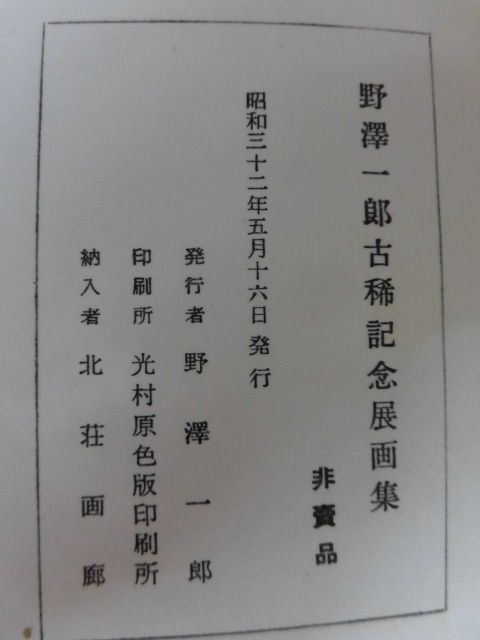 野澤一郎古稀記念展画集
非賣品
昭和三十二年五月十六日発行
発行者 野澤一郎
印刷所 光村原色版印刷所
納入者 北荘画廊